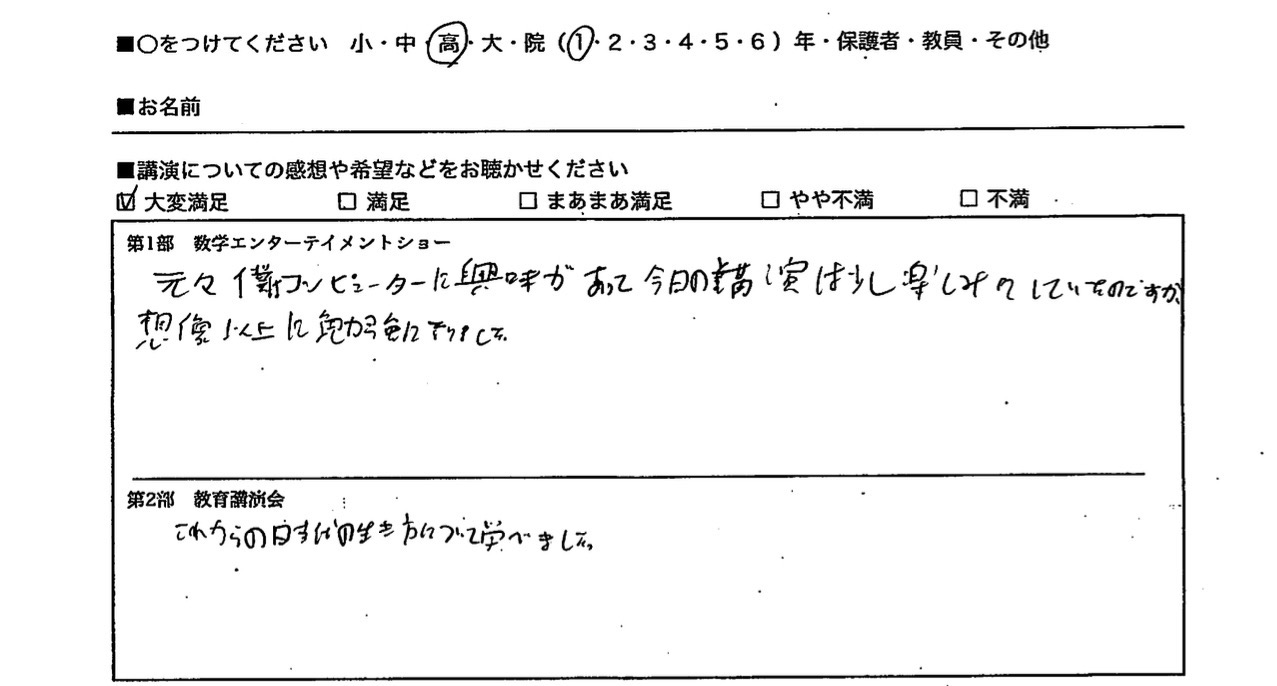 ■○をつけてください 小・中・高・大・院（1・2・3・4・5・6）年・保護者・教員・その他
■お名前
■講演についての感想や希望などをお聴かせください
☑ 大変満足 □ 満足 □ まあまあ満足 □ やや不満 □ 不満
第1部 数学エンターテイメントショー
元々僕コンピューターに興味があって今日の講演は少し楽しみにしていたのですが、
想像以上に勉強になりました。
第2部 教育講演会
これからの時代の生き方について学べました。